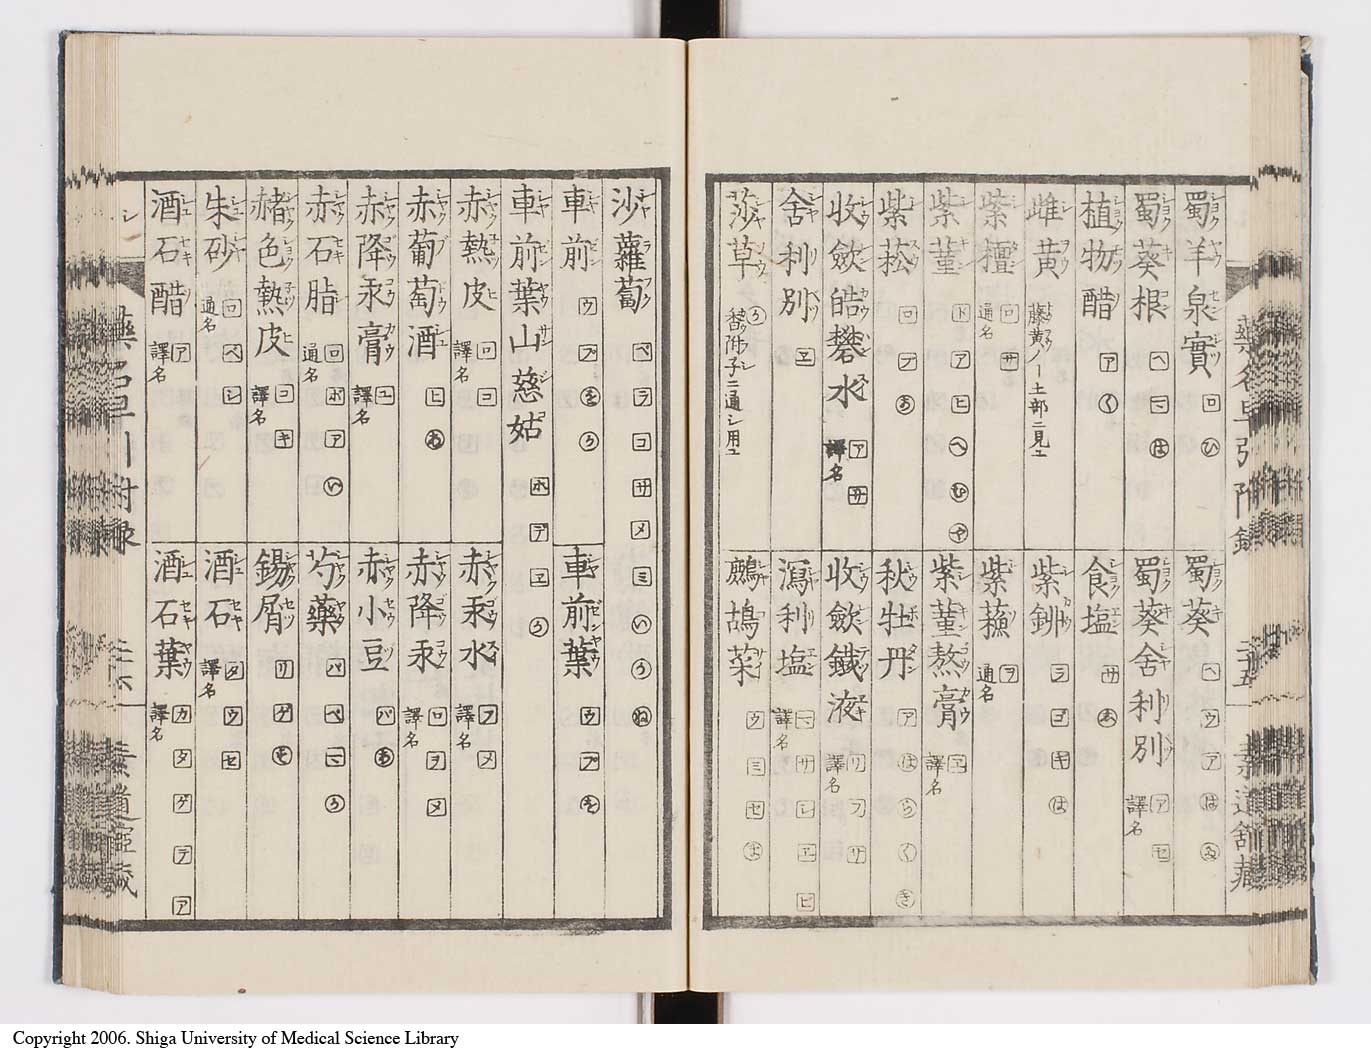 蜀羊泉實 ロ ひ
蜀葵 ヘ ウ ア は ゐ
蜀葵根 ヘ ニ は
蜀葵舍利別 譯名 ア セ
植物醋 ア く
食塩 サ あ
雌黄 藤黄ノ一土部ニ見ユ
紫鉚 ラ ゴ キ は
紫檀 通名 ロ サ
紫蘓 通名 ヲ
紫菫 ド ア ヒ へ ひ や
紫菫熬膏 譯名 ヱ
紫菘 ロ フ あ
秋牡丹 ア は ら く き
收斂皓礬水 譯名 ア サ
收斂鐵液 譯名 リ フ リ
舍利別 ヱ
瀉利塩 譯名 マ サ レ ヱ ヒ
莎草 う 香附子ニ通シ用ユ
鷓鴣菜 ウ ミ セ よ
藥名早引附録 三十五 素道舍藏
沙蘿蔔 ベ ラ コ サ メ ミ い う ぬ
車前 ウ ブ を う
車前葉 ウ ブ を
車前葉山慈姑 ホ デ ヱ う
赤熱皮 譯名 ロ コ
赤汞水 譯名 フ メ
赤葡萄酒 ヒ ゐ
赤降汞 譯名 ロ ヲ メ
赤降汞膏 譯名 ユ
赤小豆 バ あ
赤石脂 通名 ロ ホ ア い
芍藥 バ ベ ニ う
赭色熱皮 譯名 コ キ
錫屑 リ ゲ そ
朱砂 通名 ロ ベ シ
酒石 譯名 タ ウ セ
酒石醋 譯名 ア
酒石葉 譯名 カ タ ゲ テ ア
シ 藥名早引附録 三十六
Copyright 2006. Shiga University of Medical Science Library